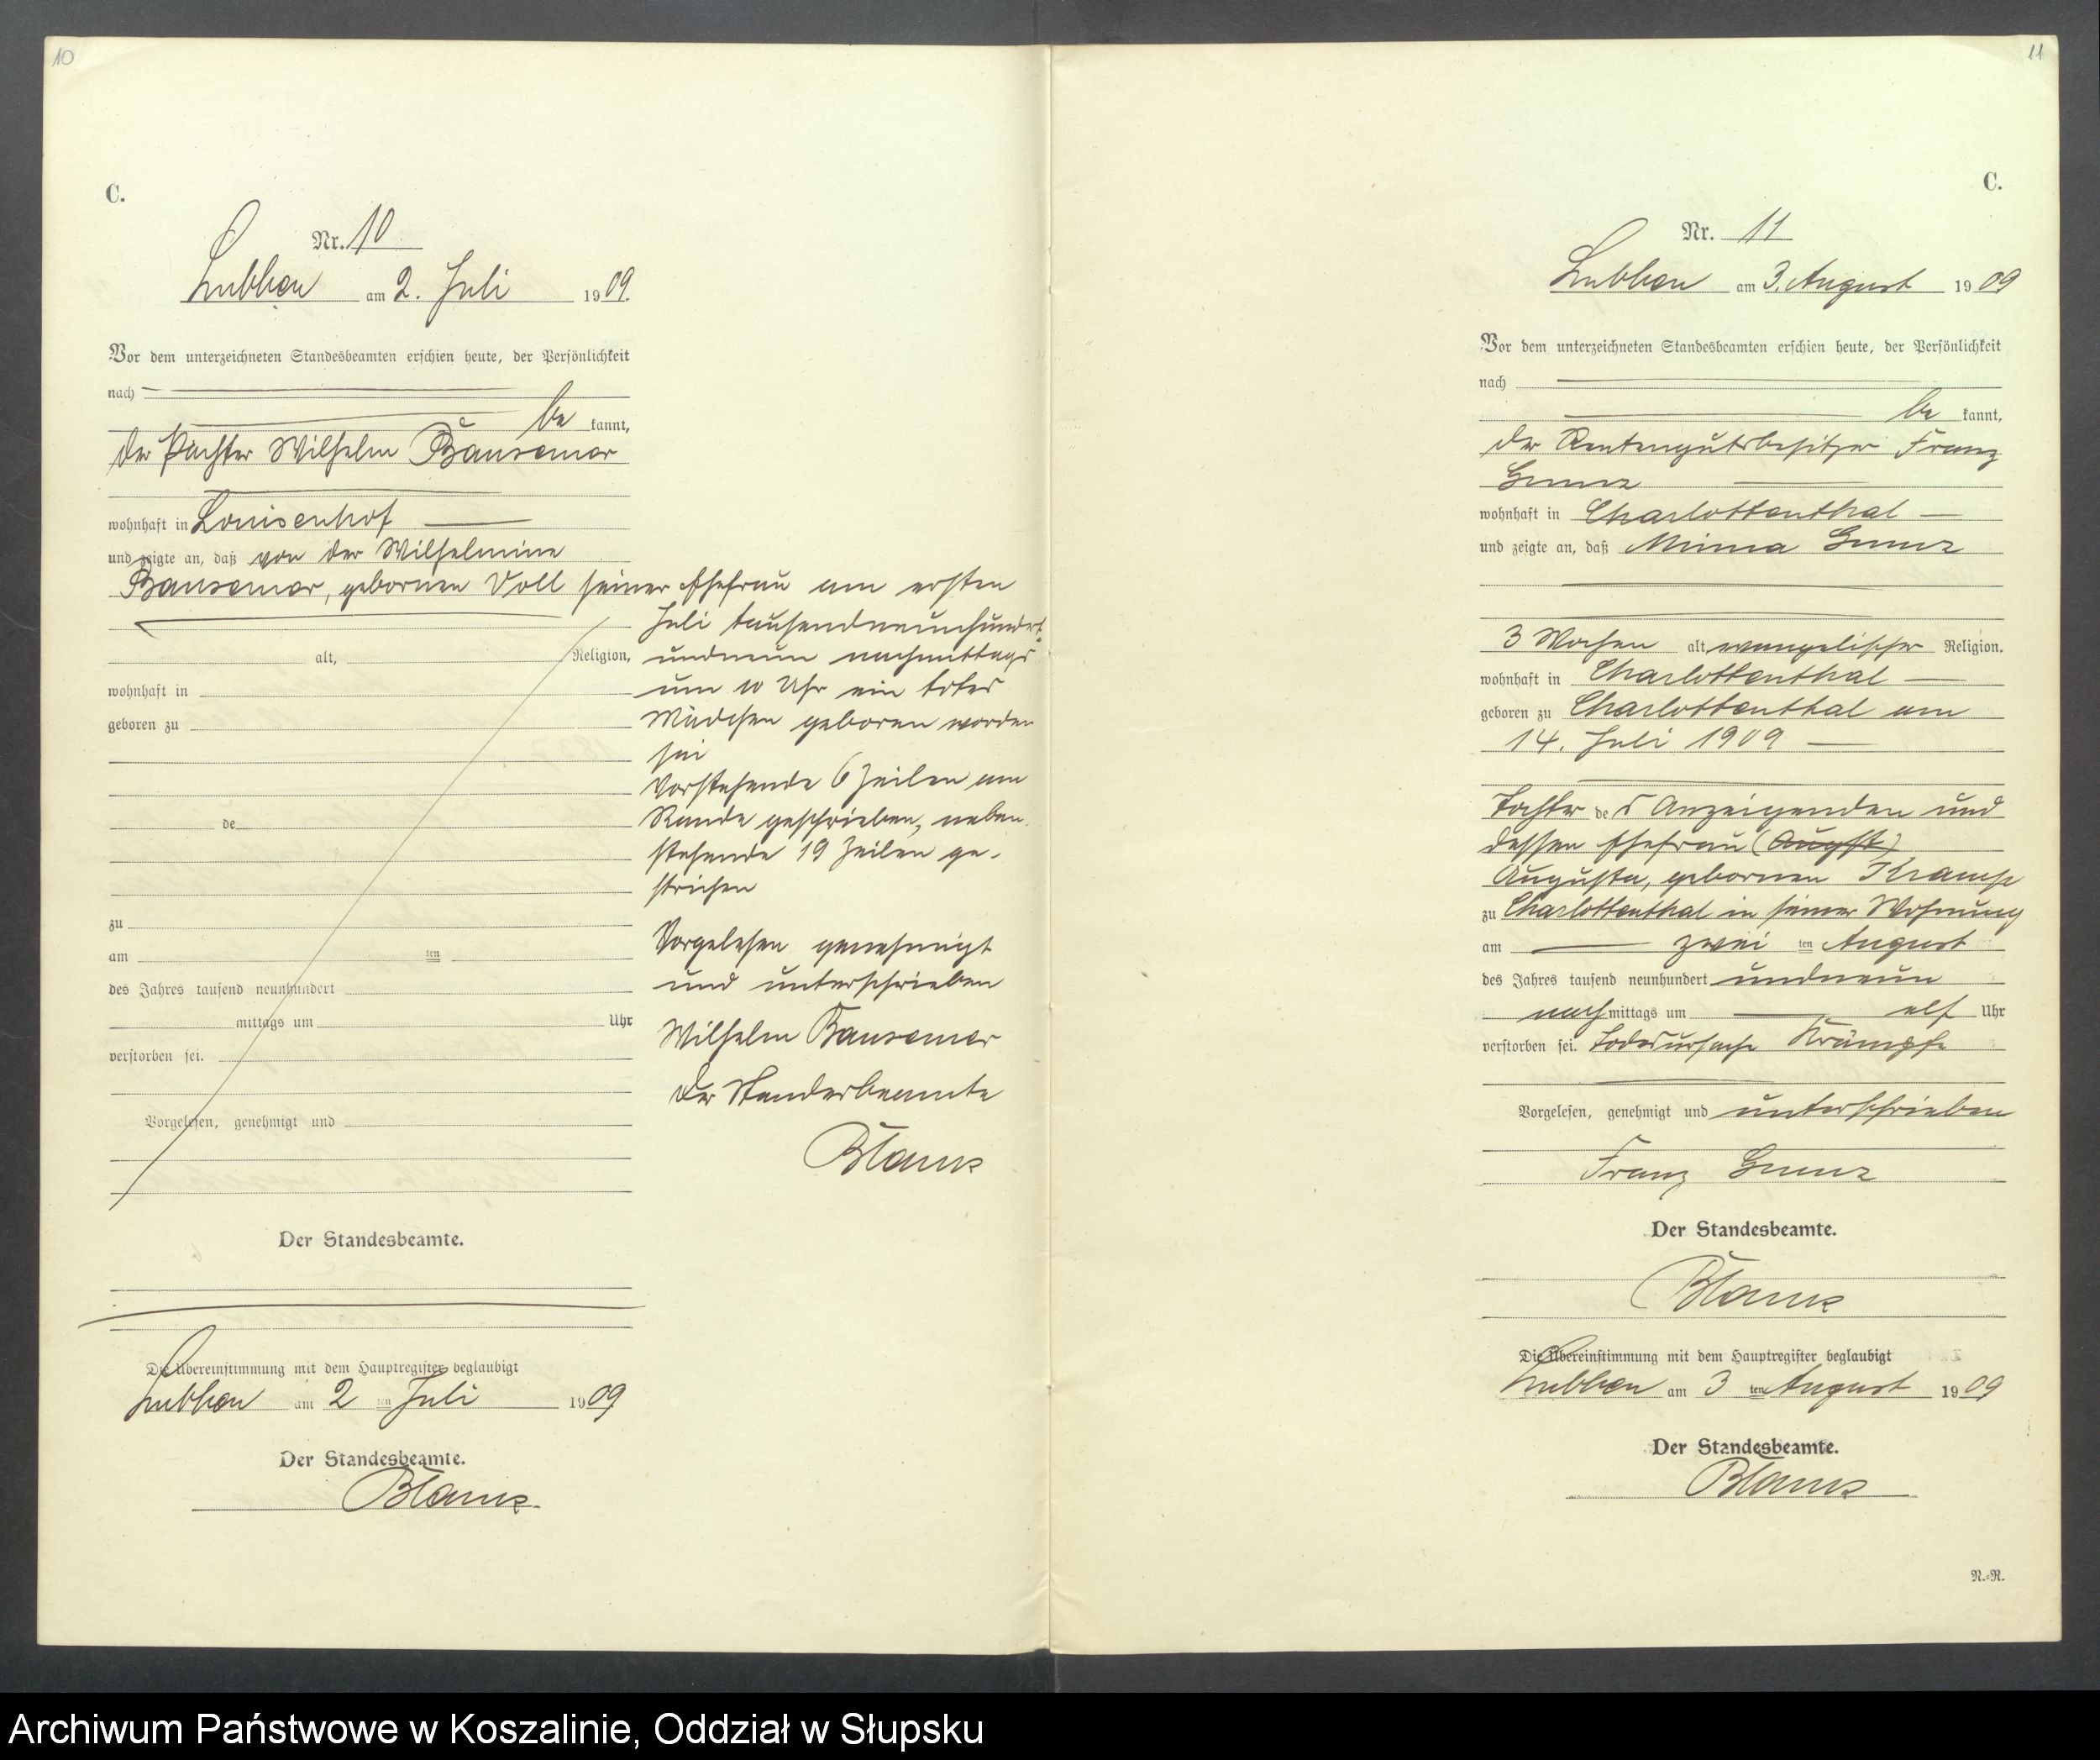 10
C.
Nr. 10
Lubben am 2. Juli 1909.
Vor dem unterzeichneten Standesbeamten erschien heute, der Persönlichkeit
nach
be kannt,
der Pächter Wilhelm Bansemer
wohnhaft in Louisenhof
und zeigte an, daß von der Wilhelmine
Bansemer, gebornen Voll seiner Ehefrau am ersten
Juli tausendneunhundert
undneun nachmittags
um 10 Uhr ein totes
Mädchen geboren worden
sei
Vorstehende 6 Zeilen am
Rande geschrieben, neben
stehende 19 Zeilen ge-
strichen
Vorgelesen genehmigt
und unterschrieben
Wilhelm Bansemer
Der Standesbeamte
alt, Religion,
wohnhaft in
geboren zu
de
zu
am ten
des Jahres tausend neunhundert
mittags um Uhr
verstorben sei.
Vorgelesen, genehmigt und
Der Standesbeamte.
Die Übereinstimmung mit dem Hauptregister beglaubigt
Lubben am 2 ten Juli 1909
Der Standesbeamte.
11
C.
Nr. 11
Lubben am 3. August 1909
Vor dem unterzeichneten Standesbeamten erschien heute, der Persönlichkeit
nach
be kannt,
der Rentengutsbesitzer Franz
wohnhaft in Charlottenthal
und zeigte an, daß Minna
3 Wochen alt, evangelischer Religion.
wohnhaft in Charlottenthal
geboren zu Charlottenthal am
14. Juli 1909
Tochter des Anzeigenden und
dessen Ehefrau (Augst)
Auguste, gebornen Kramp
zu Charlottenthal in seiner Wohnung
am zwei ten August
des Jahres tausend neunhundert undneun
nach mittags um elf Uhr
verstorben sei. Todesursache Krämpfe
Vorgelesen, genehmigt und unterschrieben
Franz
Der Standesbeamte.
Die Übereinstimmung mit dem Hauptregister beglaubigt
Lubben am 3 ten August 1909
Der Standesbeamte.
N.=R.
Archiwum Państwowe w Koszalinie, Oddział w Słupsku